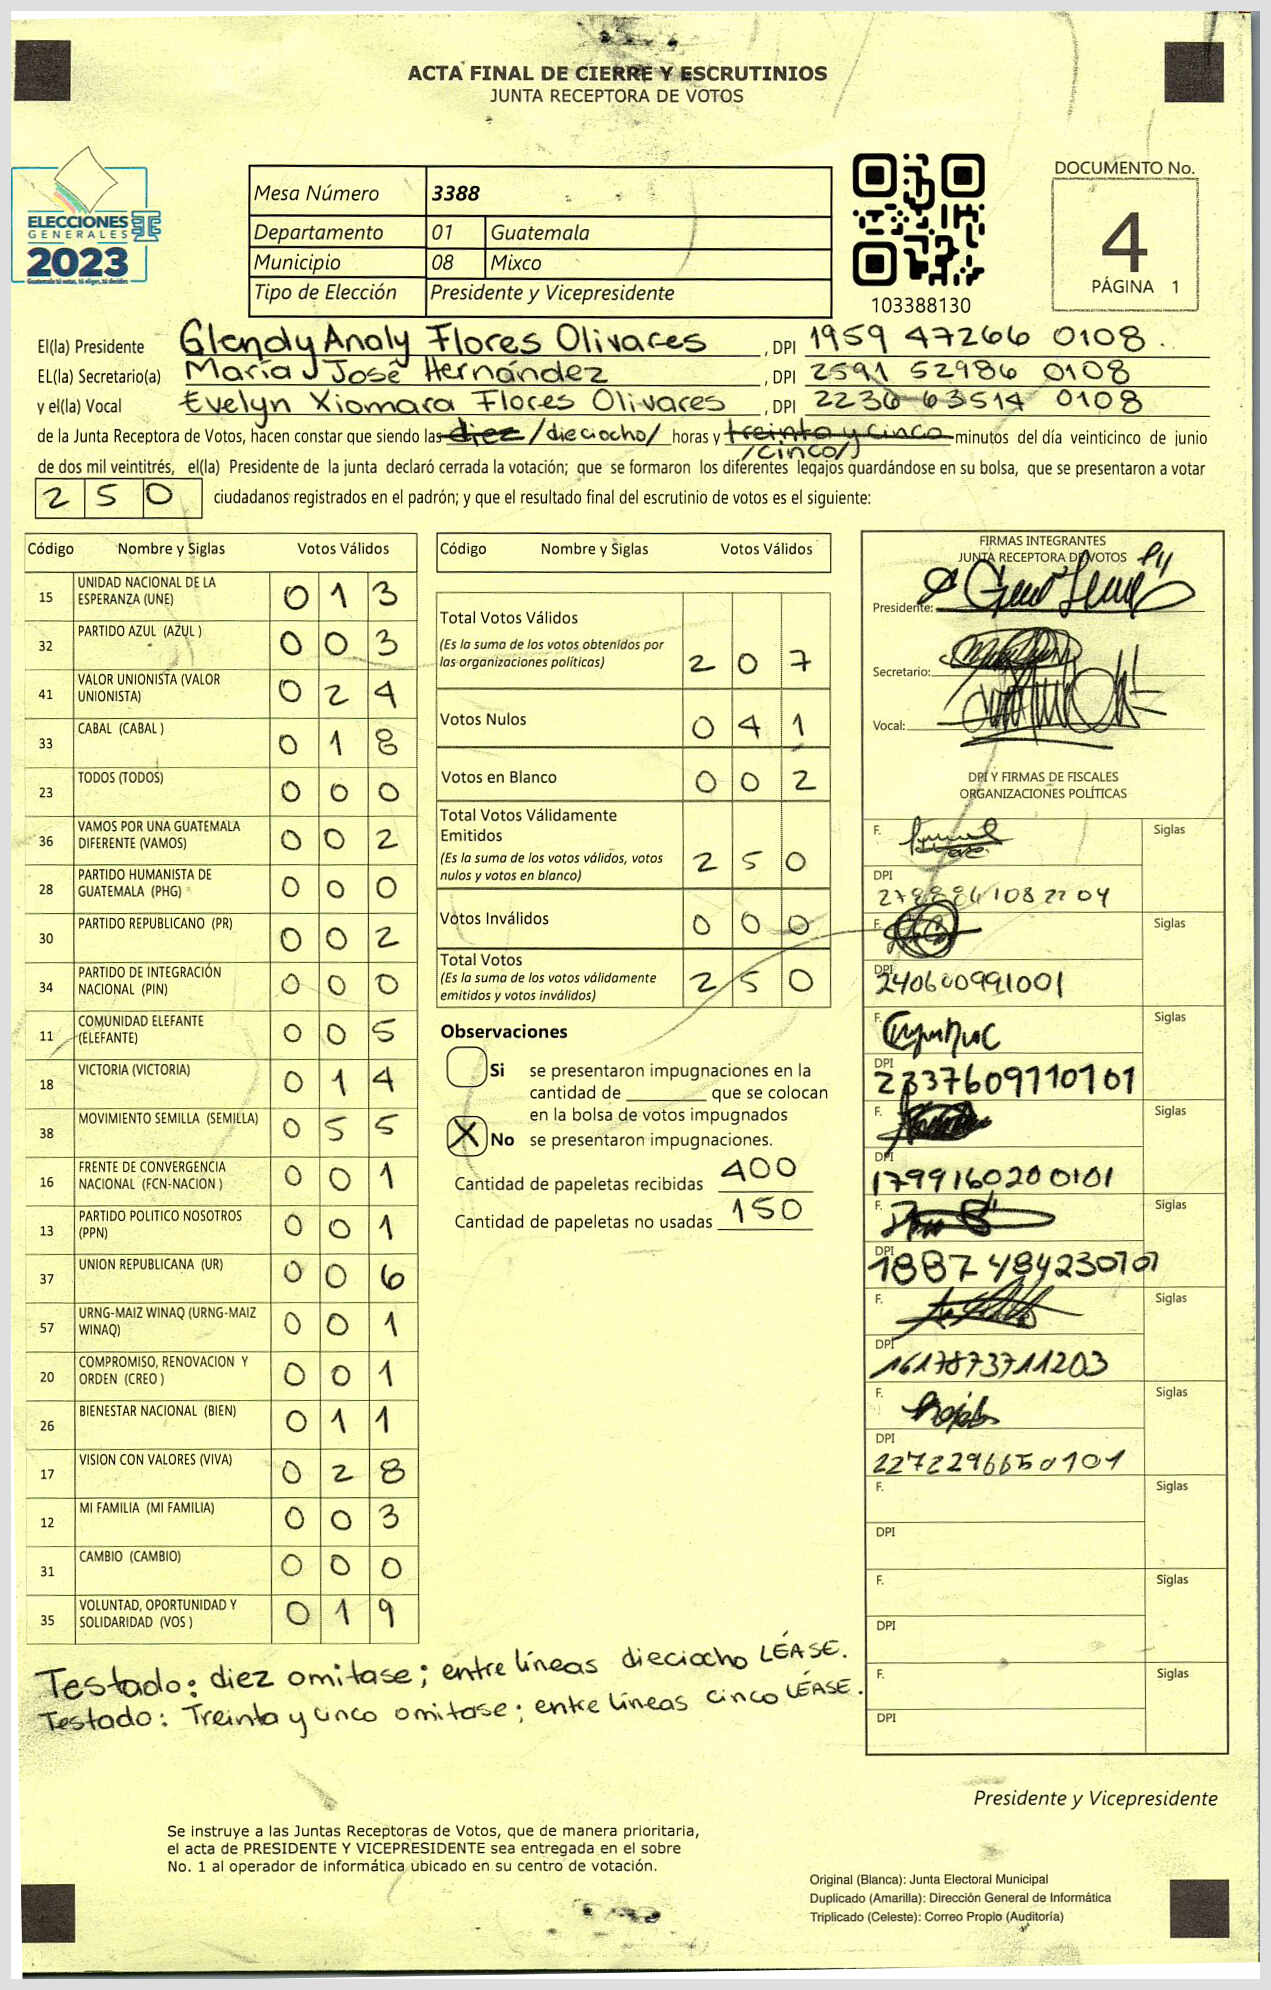 ACTA FINAL DE CIERRE Y ESCRUTINIOS
JUNTA RECEPTORA DE VOTOS
ELECCIONES
GENERALES
2023
Guatemala tú votas, tú eliges, tú decides
Mesa Número 3388
Departamento 01 Guatemala
Municipio 08 Mixco
Tipo de Elección Presidente y Vicepresidente
103388130
DOCUMENTO No.
4
PÁGINA 1
El(la) Presidente Glendy Analy Flores Olivares, DPI 1959 47266 0108.
EL(la) Secretario(a) María José Hernández, DPI 2591 52986 0108
y el(la) Vocal Evelyn Xiomara Flores Olivares, DPI 2236 63514 0108
de la Junta Receptora de Votos, hacen constar que siendo las diez /dieciocho/ horas y treinta y cinco minutos del día veinticinco de junio
/cinco/
de dos mil veintitrés, el(la) Presidente de la junta declaró cerrada la votación; que se formaron los diferentes legajos guardándose en su bolsa, que se presentaron a votar
250 ciudadanos registrados en el padrón; y que el resultado final del escrutinio de votos es el siguiente:
Código Nombre y Siglas Votos Válidos
15 UNIDAD NACIONAL DE LA ESPERANZA (UNE) 0 1 3
32 PARTIDO AZUL (AZUL ) 0 0 3
41 VALOR UNIONISTA (VALOR UNIONISTA) 0 2 4
33 CABAL (CABAL ) 0 1 8
23 TODOS (TODOS) 0 0 0
36 VAMOS POR UNA GUATEMALA DIFERENTE (VAMOS) 0 0 2
28 PARTIDO HUMANISTA DE GUATEMALA (PHG) 0 0 0
30 PARTIDO REPUBLICANO (PR) 0 0 2
34 PARTIDO DE INTEGRACIÓN NACIONAL (PIN) 0 0 0
11 COMUNIDAD ELEFANTE (ELEFANTE) 0 0 5
18 VICTORIA (VICTORIA) 0 1 4
38 MOVIMIENTO SEMILLA (SEMILLA) 0 5 5
16 FRENTE DE CONVERGENCIA NACIONAL (FCN-NACION ) 0 0 1
13 PARTIDO POLITICO NOSOTROS (PPN) 0 0 1
37 UNION REPUBLICANA (UR) 0 0 6
57 URNG-MAIZ WINAQ (URNG-MAIZ WINAQ) 0 0 1
20 COMPROMISO, RENOVACION Y ORDEN (CREO ) 0 0 1
26 BIENESTAR NACIONAL (BIEN) 0 1 1
17 VISION CON VALORES (VIVA) 0 2 8
12 MI FAMILIA (MI FAMILIA) 0 0 3
31 CAMBIO (CAMBIO) 0 0 0
35 VOLUNTAD, OPORTUNIDAD Y SOLIDARIDAD (VOS ) 0 1 9
Código Nombre y Siglas Votos Válidos
Total Votos Válidos
(Es la suma de los votos obtenidos por
las organizaciones políticas) 2 0 7
Votos Nulos 0 4 1
Votos en Blanco 0 0 2
Total Votos Válidamente
Emitidos
(Es la suma de los votos válidos, votos
nulos y votos en blanco) 2 5 0
Votos Inválidos 0 0 0
Total Votos
(Es la suma de los votos válidamente
emitidos y votos inválidos) 2 5 0
Observaciones
Si se presentaron impugnaciones en la
cantidad de ________ que se colocan
en la bolsa de votos impugnados
X No se presentaron impugnaciones.
Cantidad de papeletas recibidas 400
Cantidad de papeletas no usadas 150
FIRMAS INTEGRANTES
JUNTA RECEPTORA DE VOTOS
Presidente:
Secretario:
Vocal:
DPI Y FIRMAS DE FISCALES
ORGANIZACIONES POLÍTICAS
F. Siglas
DPI
F. Siglas
DPI 240600991001
F. Siglas
DPI 2337609110101
F. Siglas
DPI 1799160200101
F. Siglas
DPI 1887484230101
F. Siglas
DPI 1617873711203
F. Siglas
DPI 2272296650101
F. Siglas
DPI
F. Siglas
DPI
F. Siglas
DPI
Testado: diez omitase; entre líneas dieciocho LÉASE.
Testado: Treinta y cinco omitase; entre líneas cinco LÉASE.
Presidente y Vicepresidente
Se instruye a las Juntas Receptoras de Votos, que de manera prioritaria,
el acta de PRESIDENTE Y VICEPRESIDENTE sea entregada en el sobre
No. 1 al operador de informática ubicado en su centro de votación.
Original (Blanca): Junta Electoral Municipal
Duplicado (Amarilla): Dirección General de Informática
Triplicado (Celeste): Correo Propio (Auditoría)